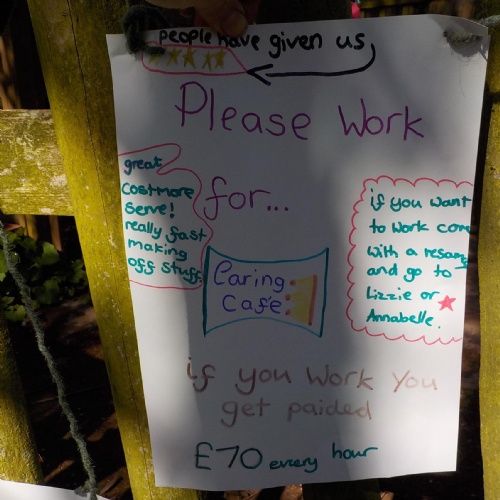 people have given us
Please Work
for...
great
Costmore
Serve!
really fast
making
off stuff
Caring
Cafe
if you want
to work come
with a resamy
and go to
Lizzie or
Annabelle.
if you work you
get paided
£70 every hour